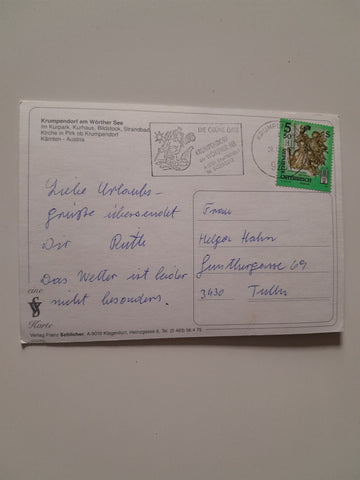 Krumpendorf am Wörther See
Im Kurpark, Kurhaus, Bildstock, Strandbad
Kirche in Pirk ob Krumpendorf
Kärnten - Austria
DIE GRÜNE OASE
KRUMPENDORF
AM WÖRTHER SEE
5
S
Liebe Urlaubs-
grüße übersendet
Dir Ruth
Das Wetter ist leider
nicht besonders.
Frau
Helga Hahn
3430 Tulln
eine
Karte
Verlag Franz Schilcher, A-9010 Klagenfurt,